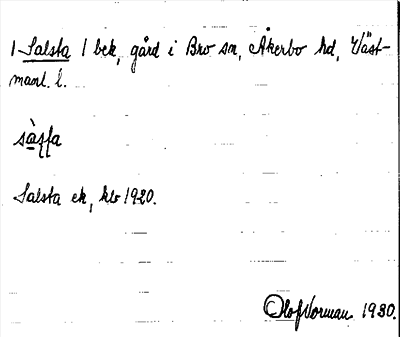 1 Salsta 1 bek, gård i Bro sn, Åkerbo hd, Väst-
manl. l.
Salsta ek, klv 1920.
Olof Norman 1930.